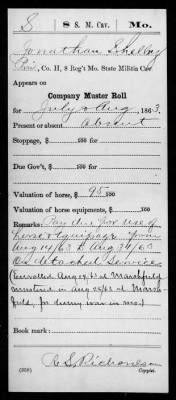 S | 8 S. M. Cav. | Mo.
Jonathan Shelby
Pvt, Co. H, 8 Reg't Mo. State Militia Cav
Appears on
Company Muster Roll
for July & Aug, 1863.
Present or absent Absent
Stoppage, $ 100 for
Due Gov't, $ 100 for
Valuation of horse, $ 95 100
Valuation of horse equipments, $ 100
Remarks: Pay due for use of
horse & Equipage from
Aug 14/63 to Aug 31/63
On detached Service
(Enrolled Aug 14, 63 at Marshfield
mustered in Aug 25/63 at Marsh-
field, for during war in mo.)
Book mark:
R S Richardson
(858) Copyist.